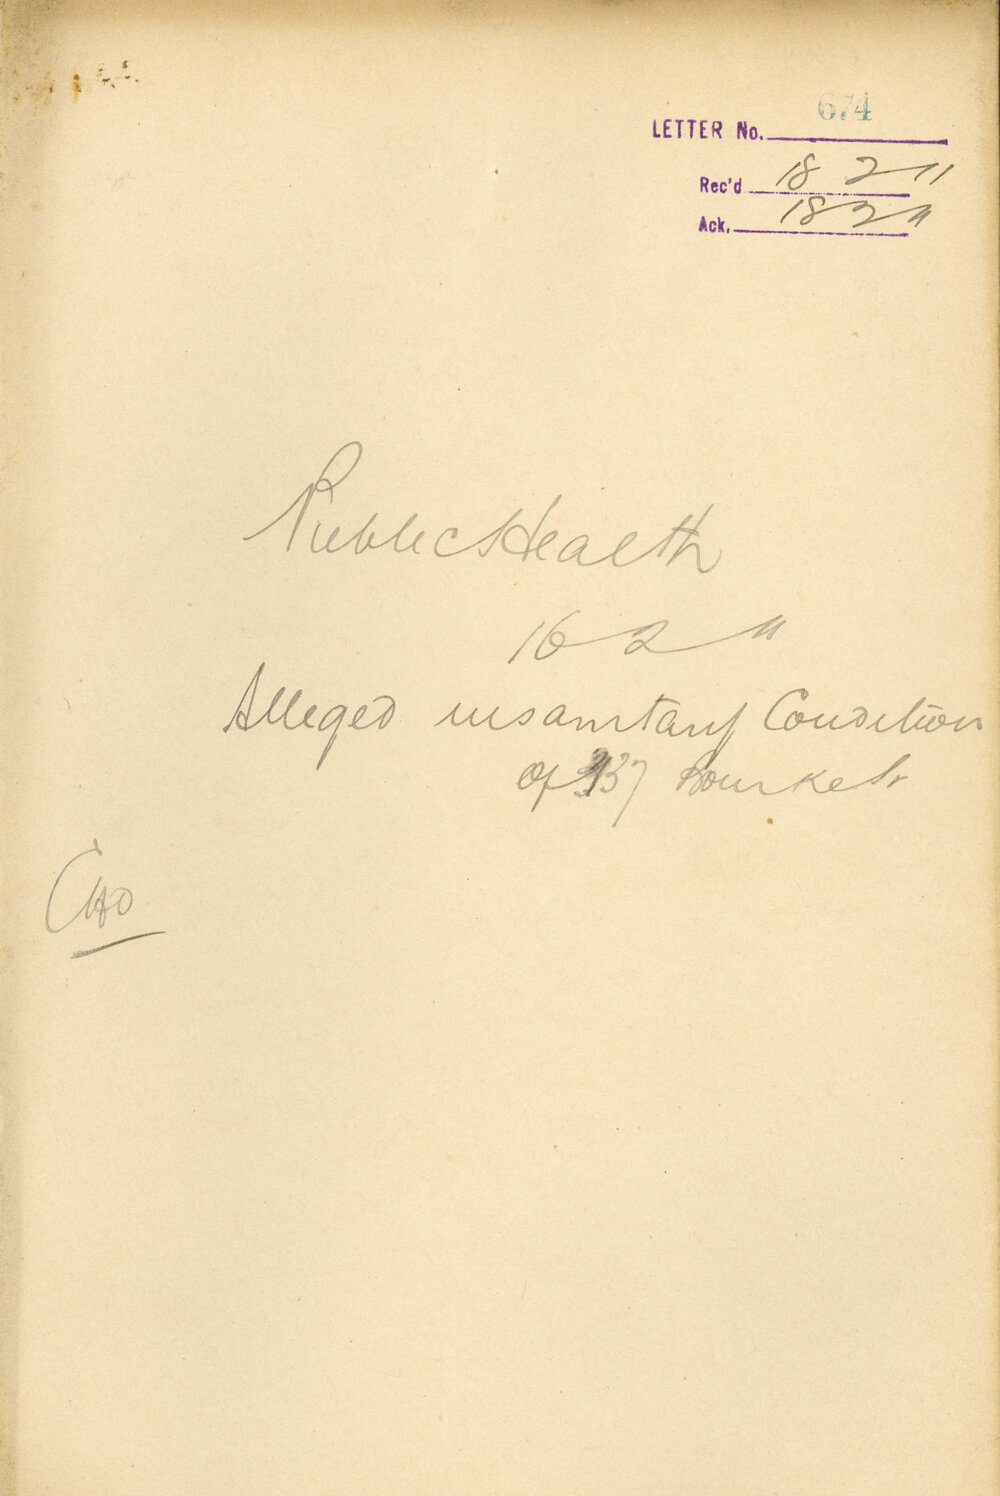 LETTER No. 674
Rec'd 18 2 11
Ack. 18 2 11
Public Health
16 2 11
Alleged insanitary Condition
of 337 Bourke St
CHO